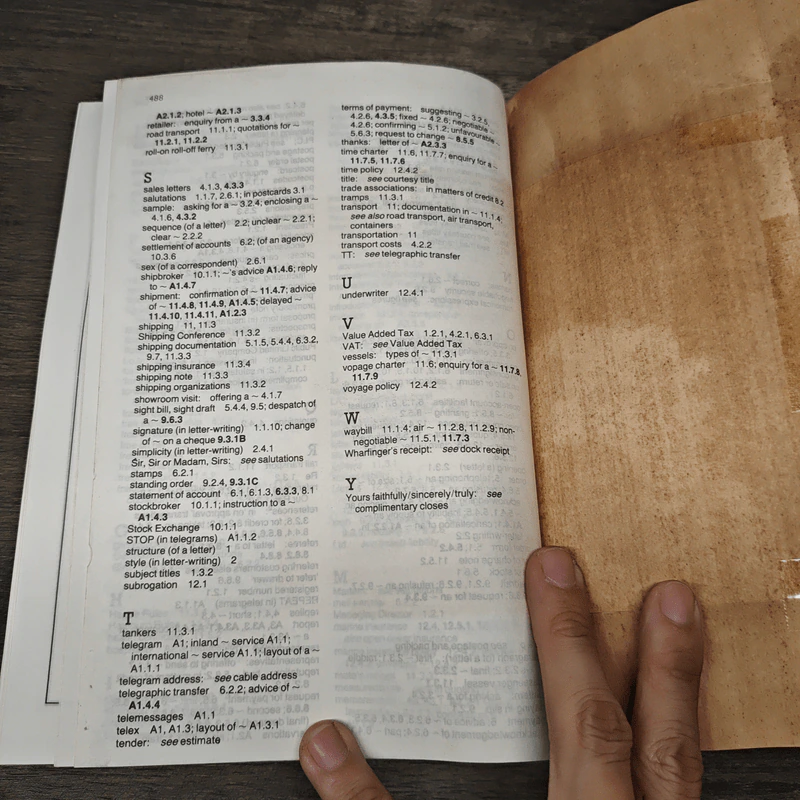 488
A2.1.2; hotel ~ A2.1.3
retailer: enquiry from a ~ 3.3.4
road transport 11.1.1; quotations for ~
11.2.1, 11.2.2
roll-on roll-off ferry 11.3.1
S
sales letters 4.1.3, 4.3.3
salutations 1.1.7, 2.6.1; in postcards 3.1
sample: asking for a ~ 3.2.4; enclosing a ~
4.1.6, 4.3.2
sequence (of a letter) 2.2; unclear ~ 2.2.1;
clear ~ 2.2.2
settlement of accounts 6.2; (of an agency)
10.3.6
sex (of a correspondent) 2.6.1
shipbroker 10.1.1; ~'s advice A1.4.6; reply
to ~ A1.4.7
shipment: confirmation of ~ 11.4.7; advice
of ~ 11.4.8, 11.4.9, A1.4.5; delayed ~
11.4.10, 11.4.11, A1.2.3
shipping 11, 11.3
Shipping Conference 11.3.2
shipping documentation 5.1.5, 5.4.4, 6.3.2,
9.7, 11.3.3
shipping insurance 11.3.4
shipping note 11.3.3
shipping organizations 11.3.2
showroom visit: offering a ~ 4.1.7
sight bill, sight draft 5.4.4, 9.5; despatch of
a ~ 9.6.3
signature (in letter-writing) 1.1.10; change
of ~ on a cheque 9.3.1B
simplicity (in letter-writing) 2.4.1
Sir, Sir or Madam, Sirs: see salutations
stamps 6.2.1
standing order 9.2.4, 9.3.1C
statement of account 6.1, 6.1.3, 6.3.3, 8.1
stockbroker 10.1.1; instruction to a ~
A1.4.3
Stock Exchange 10.1.1
STOP (in telegrams) A1.1.2
structure (of a letter) 1
style (in letter-writing) 2
subject titles 1.3.2
subrogation 12.1
T
tankers 11.3.1
telegram A1; inland ~ service A1.1;
international ~ service A1.1; layout of a ~
A1.1.1
telegram address: see cable address
telegraphic transfer 6.2.2; advice of ~
A1.4.4
telemessages A1.1
telex A1, A1.3; layout of ~ A1.3.1
tender: see estimate
terms of payment: suggesting ~ 3.2.5,
4.2.6, 4.3.5; fixed ~ 4.2.6; negotiable ~
4.2.6; confirming ~ 5.1.2; unfavourable ~
5.6.3; request to change ~ 8.5.5
thanks: letter of ~ A2.3.3
time charter 11.6, 11.7.7; enquiry for a ~
11.7.5, 11.7.6
time policy 12.4.2
title: see courtesy title
trade associations: in matters of credit 8.2
tramps 11.3.1
transport 11; documentation in ~ 11.1.4;
see also road transport, air transport,
containers
transportation 11
transport costs 4.2.2
TT: see telegraphic transfer
U
underwriter 12.4.1
V
Value Added Tax 1.2.1, 4.2.1, 6.3.1
VAT: see Value Added Tax
vessels: types of ~ 11.3.1
vopage charter 11.6; enquiry for a ~ 11.7.8,
11.7.9
voyage policy 12.4.2
W
waybill 11.1.4; air ~ 11.2.8, 11.2.9; non-
negotiable ~ 11.5.1, 11.7.3
Wharfinger's receipt: see dock receipt
Y
Yours faithfully/sincerely/truly: see
complimentary closes